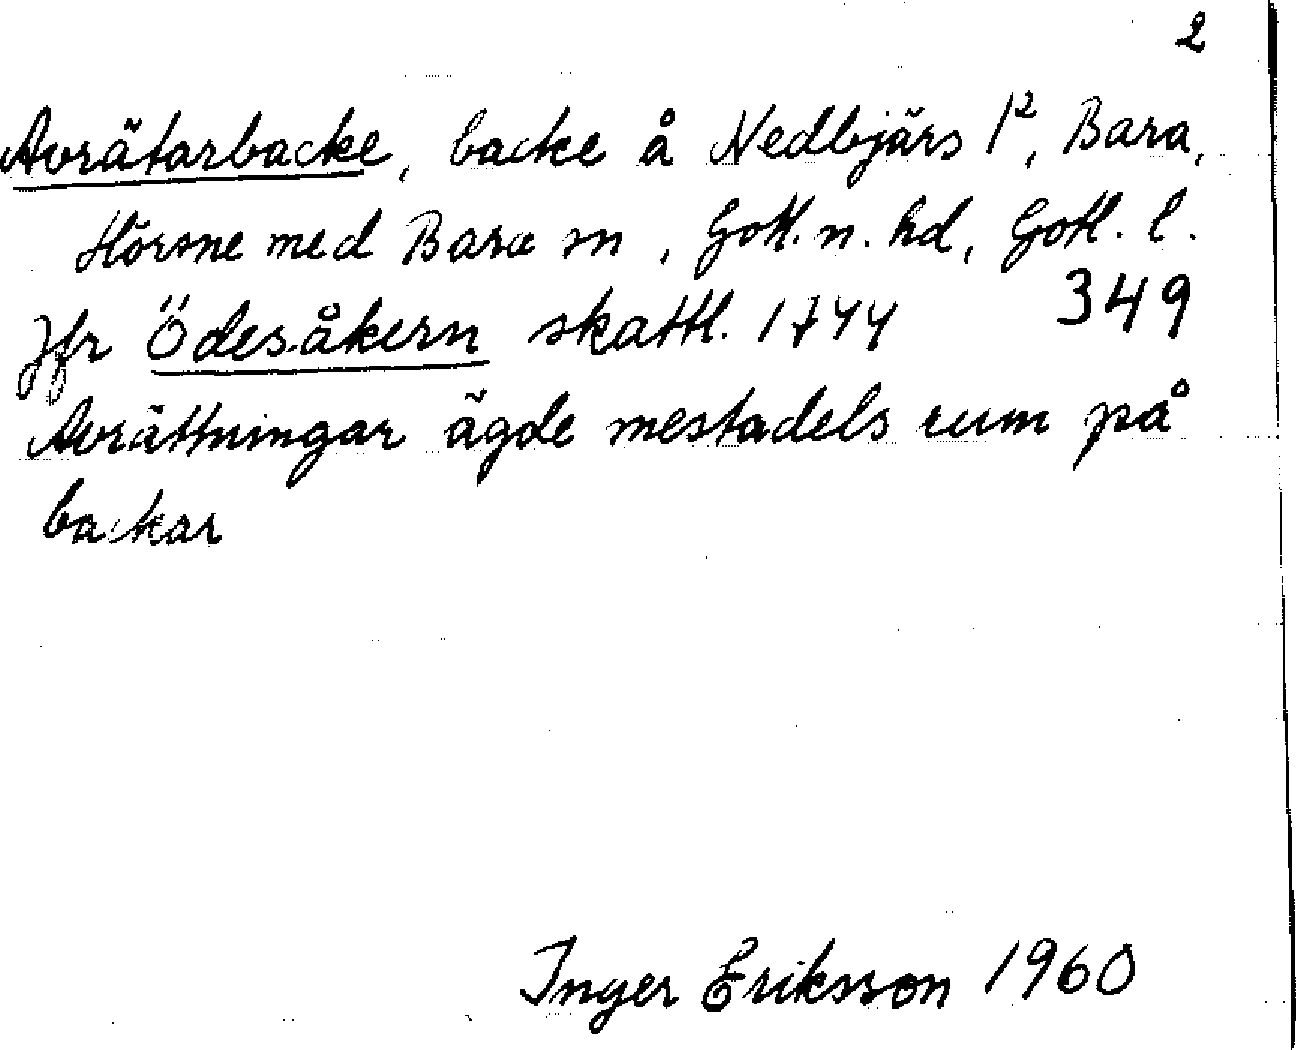 2
Avrätarbacke, backe å Nedbjärs 1², Bara,
Hörsne med Bara sn, Gotl. n. hd, Gotl. l.
Jfr Ödesåkern skattl. 1744 349
Avrättningar ägde mestadels rum på
backar
Inger Eriksson 1960